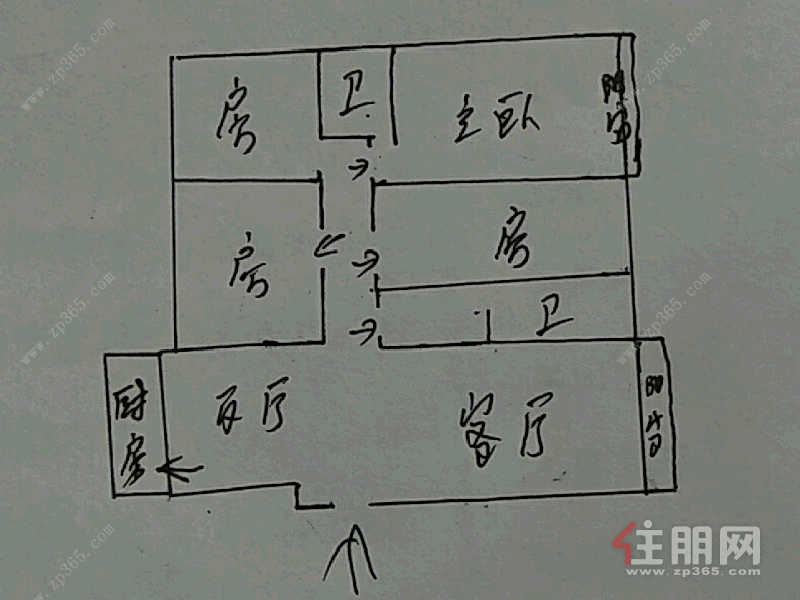 房
卫
主卧
阳台
房
房
卫
厨房
歺厅
客厅
阳台
住朋网
www.zp365.com